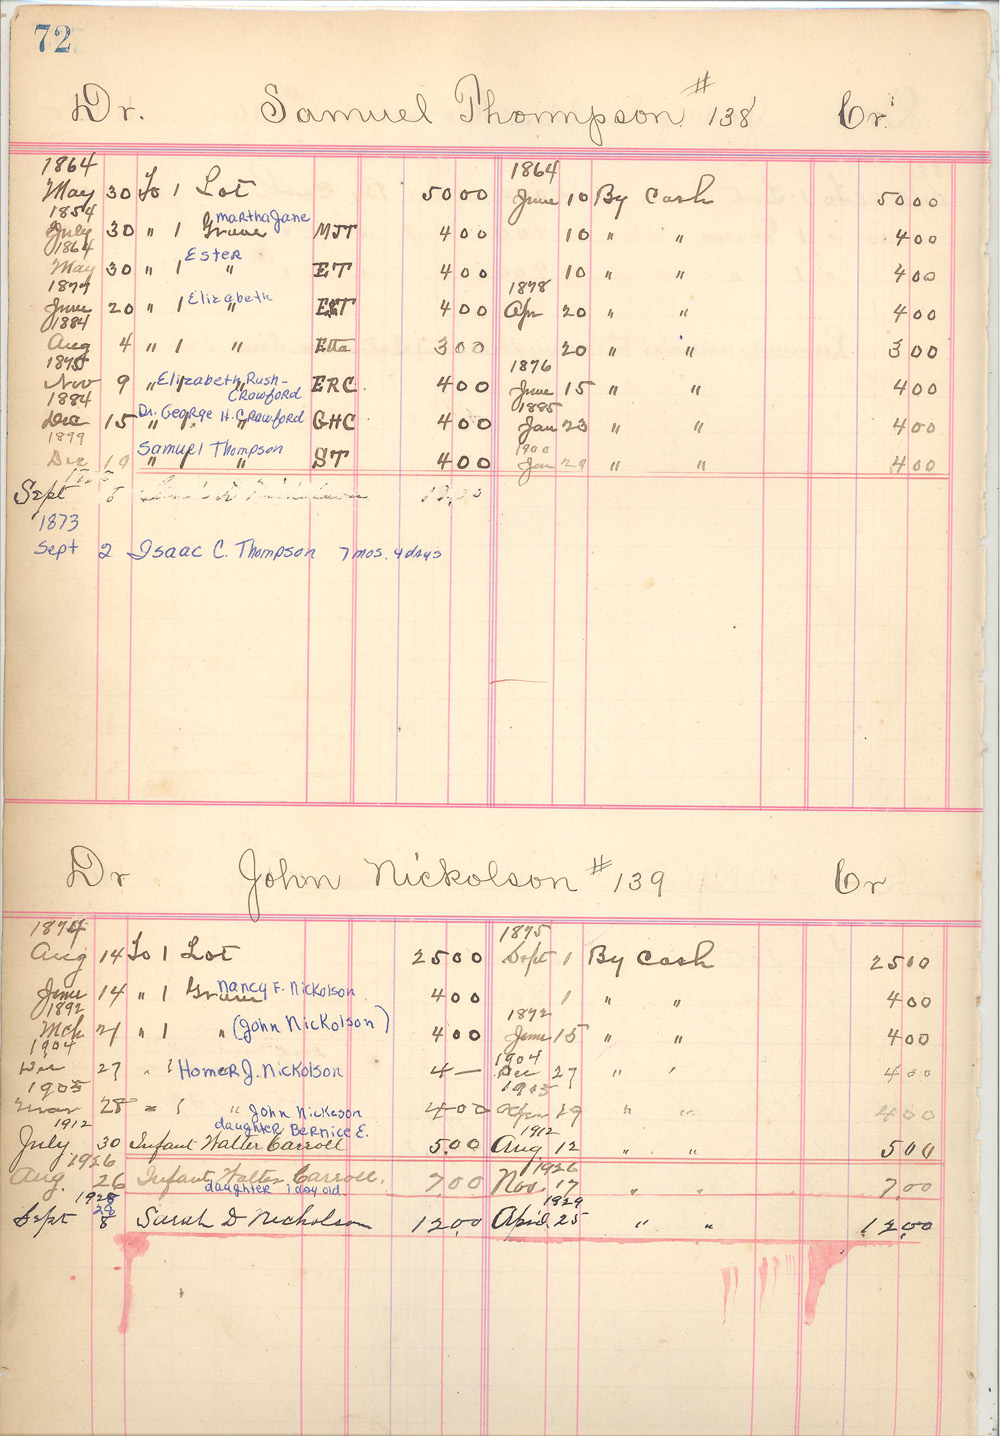 72
Dr. Samuel Thompson # 138 Cr.
1864 1864
May 30 To 1 Lot 50 00 June 10 By Cash 50 00
1854 Martha Jane
July 30 " 1 Grave MJT 4 00 10 " " 4 00
1864 Ester
May 30 " 1 " ET 4 00 10 " " 4 00
1879 Elizabeth 1878
June 20 " 1 " EET 4 00 Apr 20 " " 4 00
1884
Aug 4 " 1 " Etta 3 00 20 " " 3 00
1875 Elizabeth Rush- 1876
Nov 9 " 1 " Crawford ERC 4 00 June 15 " " 4 00
1884 Dr. George H. Crawford 1885
Dec 15 " " GHC 4 00 Jan 23 " " 4 00
1899 Samuel Thompson 1900
Dec 19 " " ST 4 00 Jan 29 " " 4 00
Sept 8 12.00
1873
Sept 2 Isaac C. Thompson 7 mos. 4 days
Dr John Nickolson # 139 Cr
1874 1875
Aug 14 To 1 Lot 25 00 Sept 1 By Cash 25 00
June 14 " 1 Grave Nancy F. Nickolson 4 00 1 " " 4 00
1892 1892
Mch 21 " 1 " (John Nickolson) 4 00 June 15 " " 4 00
1904 1904
Dec 27 " 1 Homer J. Nickolson 4 — Dec 27 " " 4 00
1905 1905
Mar 28 " 1 " John Nickeson 4 00 Apr 19 " " 4 00
1912 daughter Bernice E. 1912
July 30 Infant Walter Carroll 5.00 Aug 12 " " 5 00
1926 1926
Aug. 26 Infant Walter Carroll. 7.00 Nov. 17 " " 7.00
daughter 1 day old
1928 29 1929
Sept 8 Sarah D Nicholson 12.00 April 25 " " 12.00